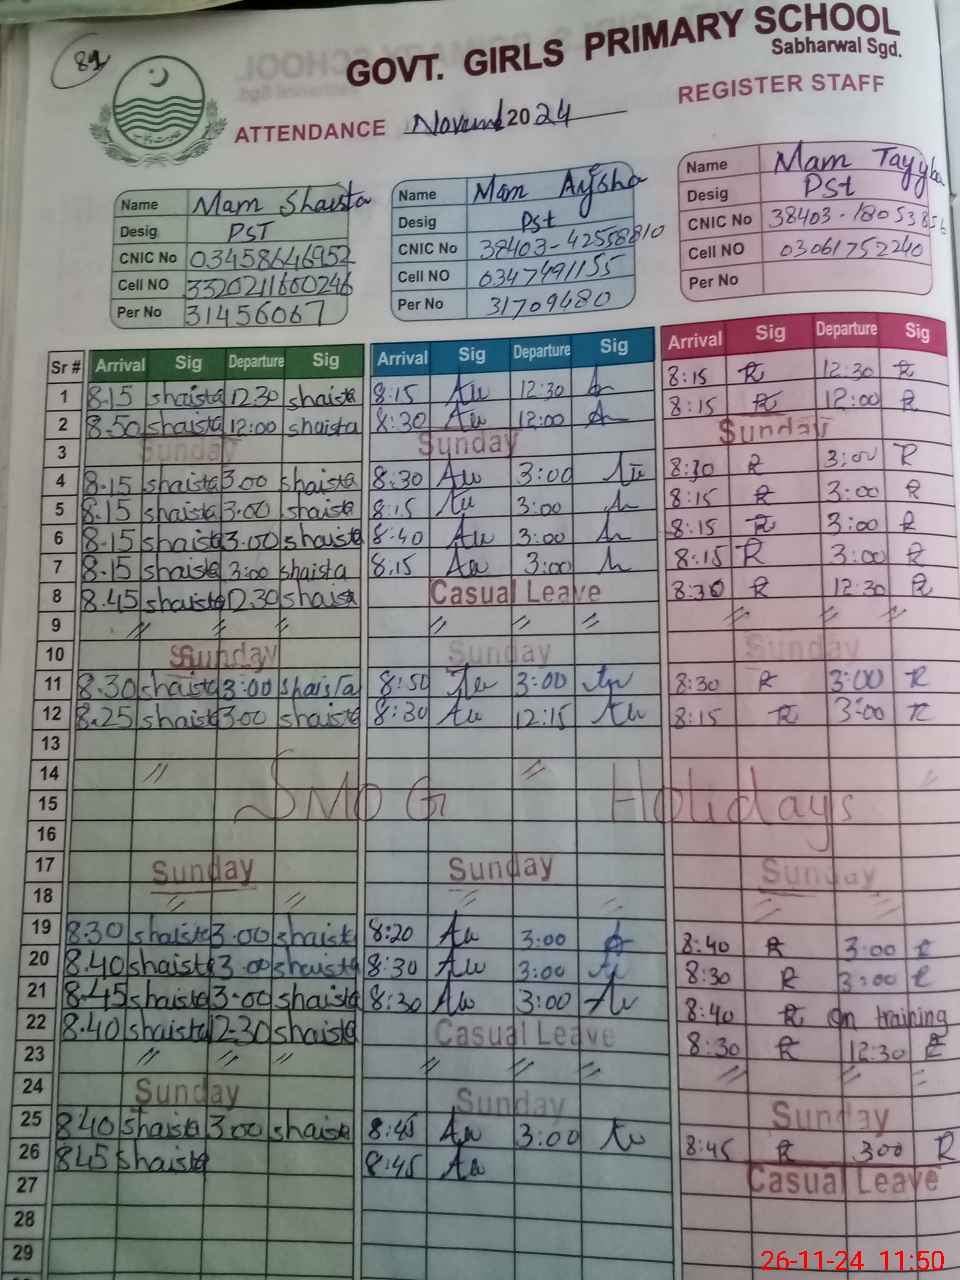 89
GOVT. GIRLS PRIMARY SCHOOL
Sabharwal Sgd.
ATTENDANCE Novem 2024 REGISTER STAFF
Name Mam Shaista
Desig PST
CNIC No 03458646952
Cell NO 3320211660246
Per No 31456067
Name Mam Ayesha
Desig Pst
CNIC No 38403-42558810
Cell NO 0347491155
Per No 31709480
Name Mam Tayyba
Desig Pst
CNIC No 38403-18053856
Cell NO 03061752240
Per No
Sr # Arrival Sig Departure Sig Arrival Sig Departure Sig Arrival Sig Departure Sig
1 8.15 shaista 12.30 shaista 8:15 12:30 8:15 R 12:30 R
2 8.50 shaista 12:00 shaista 8:30 12:00 8:15 R 12:00 R
3 Sunday Sunday Sunday
4 8.15 shaista 3.00 shaista 8:30 3:00 8:30 R 3:00 R
5 8.15 shaista 3.00 shaista 8:15 3:00 8:15 R 3:00 R
6 8.15 shaista 3.00 shaista 8:40 3:00 8:15 R 3:00 R
7 8.15 shaista 3:00 shaista 8:15 3:00 8:15 R 3:00 R
8 8.45 shaista 12.30 shaista Casual Leave 8:30 R 12:30 R
9 // // // // // // // // //
10 Sunday Sunday Sunday
11 8.30 shaista 3:00 shaista 8:50 3:00 8:30 R 3:00 R
12 8.25 shaista 3.00 shaista 8:30 12:15 8:15 R 3:00 R
13
14 // // //
15 SMOG Holidays
16
17 Sunday Sunday Sunday
18 // // // // // //
19 8.30 shaista 3.00 shaista 8:20 3:00 8:40 R 3:00 R
20 8.40 shaista 3.00 shaista 8:30 3:00 8:30 R 3:00 R
21 8.45 shaista 3.00 shaista 8:30 3:00 8:40 R On training
22 8.40 shaista 12.30 shaista Casual Leave 8:30 R 12:30 R
23 // // // // // // // // //
24 Sunday Sunday Sunday
25 8.40 shaista 3.00 shaista 8:45 3:00 8:45 R 3:00 R
26 8.45 shaista 8:45 Casual Leave
27
28
29
26-11-24 11:50